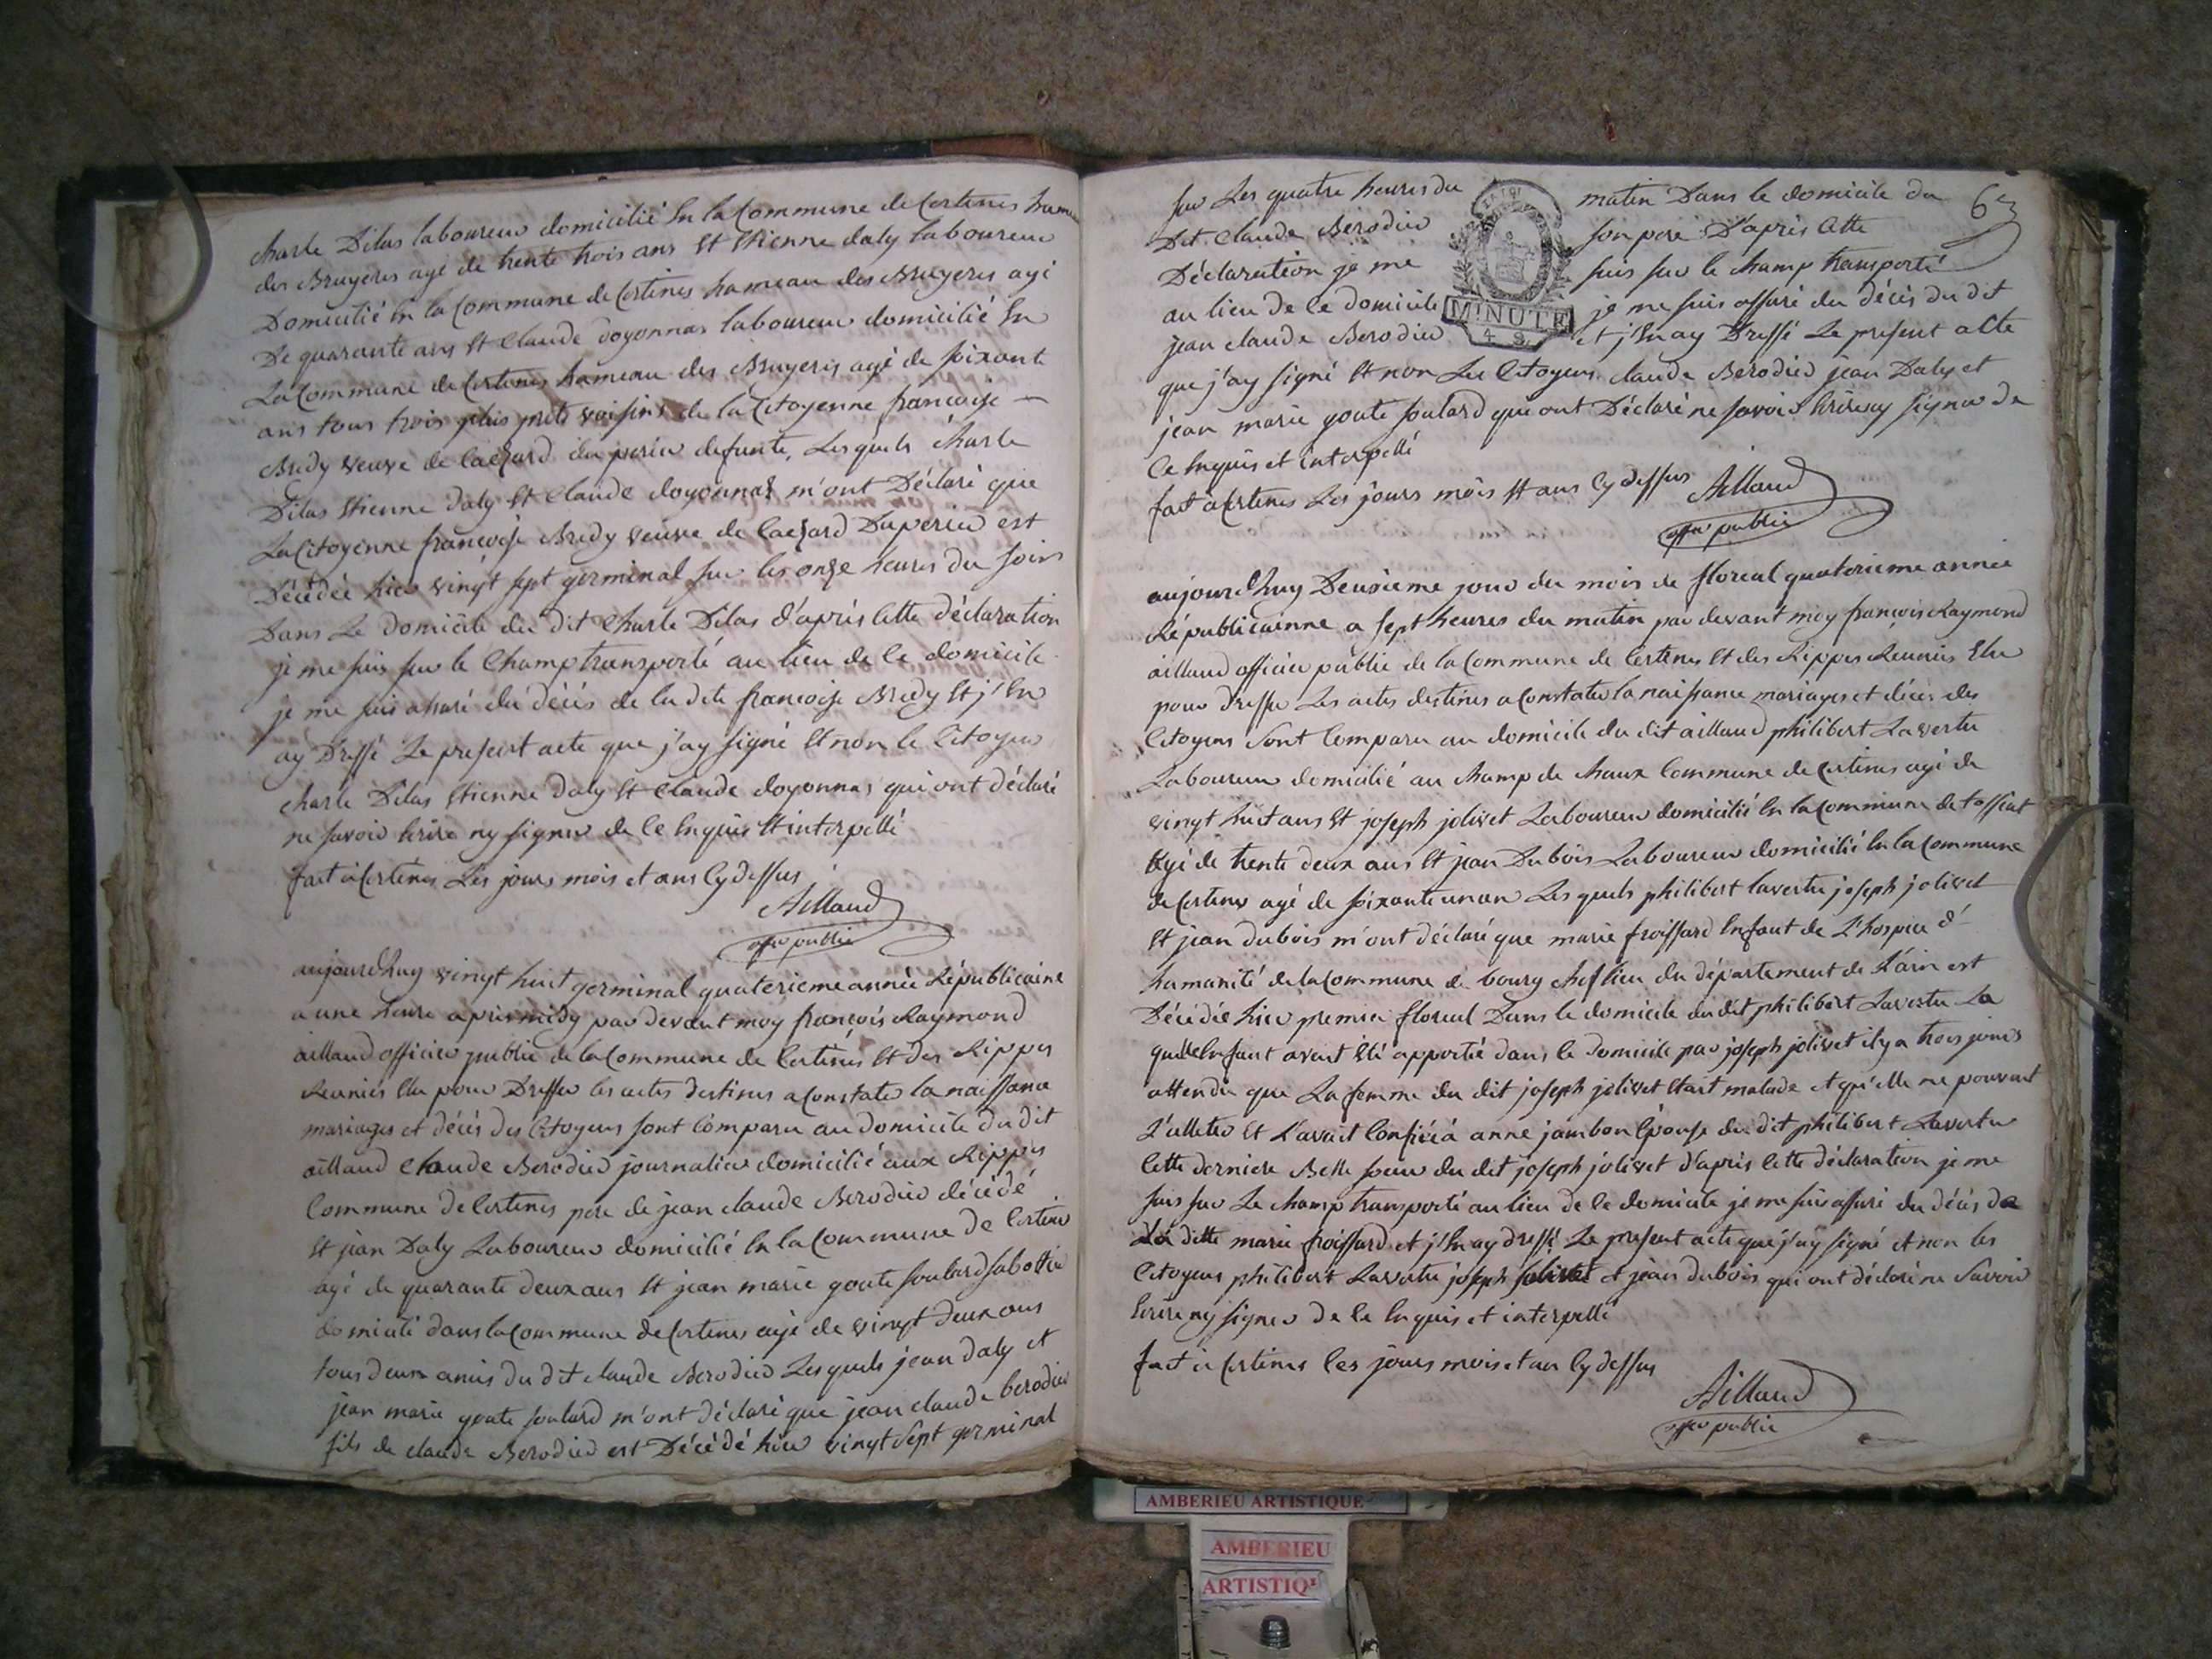 charle Dilas laboureur domicilié En la Commune de Certines hameau
des Bruyeres agé de trente trois ans Et Etienne daly laboureur
Domicilié En la Commune de Certines hameau des Bruyeres agé
De quarante ans Et Claude doyonnas laboureur domicilié En
La Commune de Certines hameau des Bruyeres agé de soixante
ans tous trois plus prets voisins de la Citoyenne francoise
Bredy veuve de Lazard du perier defunte, Les quels charle
Dilas Etienne Daly Et Claude doyonnas m'ont Déclaré que
La Citoyenne francoise Bredy veuve de Lazard Duperier est
Décédée hier vingt sept germinal sur les onze heures du soir
Dans Le domicile du dit Charle Dilas d'après Cette déclaration
je me suis sur le Champ transporté au lieu de Ce domicile
je me suis assuré du décés de la dite francoise Bredy Et j'En
ay Dressé Le present acte que j'ay signé Et non le Citoyen
charle Dilas Etienne Daly Et Claude doyonnas qui ont déclaré
ne savoir Ecrire ny signer de Ce Enquis Et interpellé
fait à Certines Les jours mois et ans Cy dessus
Aillaud
offer public
aujourdhuy vingt huit germinal quatrieme année Républicaine
a une heure après midy par devant moy françois Raymond
aillaud officier public de la Commune de Certines Et des Rippes
Reunies Elu pour Dresser les actes destinés a Constater la naissance
mariages et décés des Citoyens sont Comparu au domicile du dit
aillaud Claude Berodier journalier domicilié aux Rippes
Commune de Certines pere de jean claude Berodier décédé
Et jean Daly Laboureur domicilié En la Commune de Certines
agé de quarante deux ans Et jean marie goute soulard sabottier
domicilié dans la Commune de Certines agé de vingt deux ans
tous deux amis du dit claude Berodier Les quels jean daly et
jean marie goute soulard m'ont déclaré que jean claude berodier
fils de claude Berodier est Décédé hier vingt sept germinal
63
sur Les quatre heures du matin Dans le domicile du
Dit Claude Berodier son pere D'après Cette
Déclaration je me suis sur le champ transporté
au lieu de Ce domicile je me suis assuré du décés du dit
jean claude Berodier et j'En ay Dressé Le present acte
MINUTE
que j'ay signé Et non Les Citoyens claude Berodier jean Daly et
jean marie goute soulard qui ont Déclaré ne savoir Ecrire ny signer de
Ce Enquis et interpellé
fait à Certines Les jours mois Et ans Cy dessus Aillaud
offer public
aujourdhuy Deusieme jour du mois de floreal quatrieme année
Républicainne a sept heures du matin par devant moy françois Raymond
aillaud officier public de la Commune de Certines Et des Rippes Reunies Elu
pour dresser Les actes destinés a Constater la naissance mariages et décés des
Citoyens Sont Comparu au domicile du dit aillaud philibert Lavertu
Laboureur domicilié au champ de chaux Commune de Certines agé de
vingt huit ans Et joseph jolivet Laboureur domicilié En la Commune de tossiat
Agé de trente deux ans Et jean Dubois Laboureur domicilié En la Commune
de Certines agé de soixante un an Les quels philibert lavertu joseph jolivet
Et jean dubois m'ont déclaré que marie froissard Enfant de L'hospice d'
humanité de la Commune de bourg chef lieu du département de L'ain est
Décédée hier premier floreal Dans le domicile du dit philibert Lavertu La
quelle Enfant avait Eté apportée dans le domicile par joseph jolivet il y a trois jours
attendu que La femme du dit joseph jolivet Etait malade et qu'elle ne pouvait
L'alleter Et L'avait Confiée à anne jambon Epouse du dit philibert Lavertu
Cette derniere Belle soeur du dit joseph jolivet d'après Cette déclaration je me
suis sur Le champ transporté au lieu de Ce domicile je me suis assuré du décés de
La ditte marie froissard et j'En ay dressé Le present acte que j'ay signé et non les
Citoyens philibert Lavertu joseph jolivet et jean dubois qui ont déclaré ne Savoir
Ecrire ny signer De Ce Enquis et interpellé
fait à Certines les jours mois et an Cy dessus
Aillaud
offer public
AMBERIEU ARTISTIQUE
AMBERIEU
ARTISTIQ